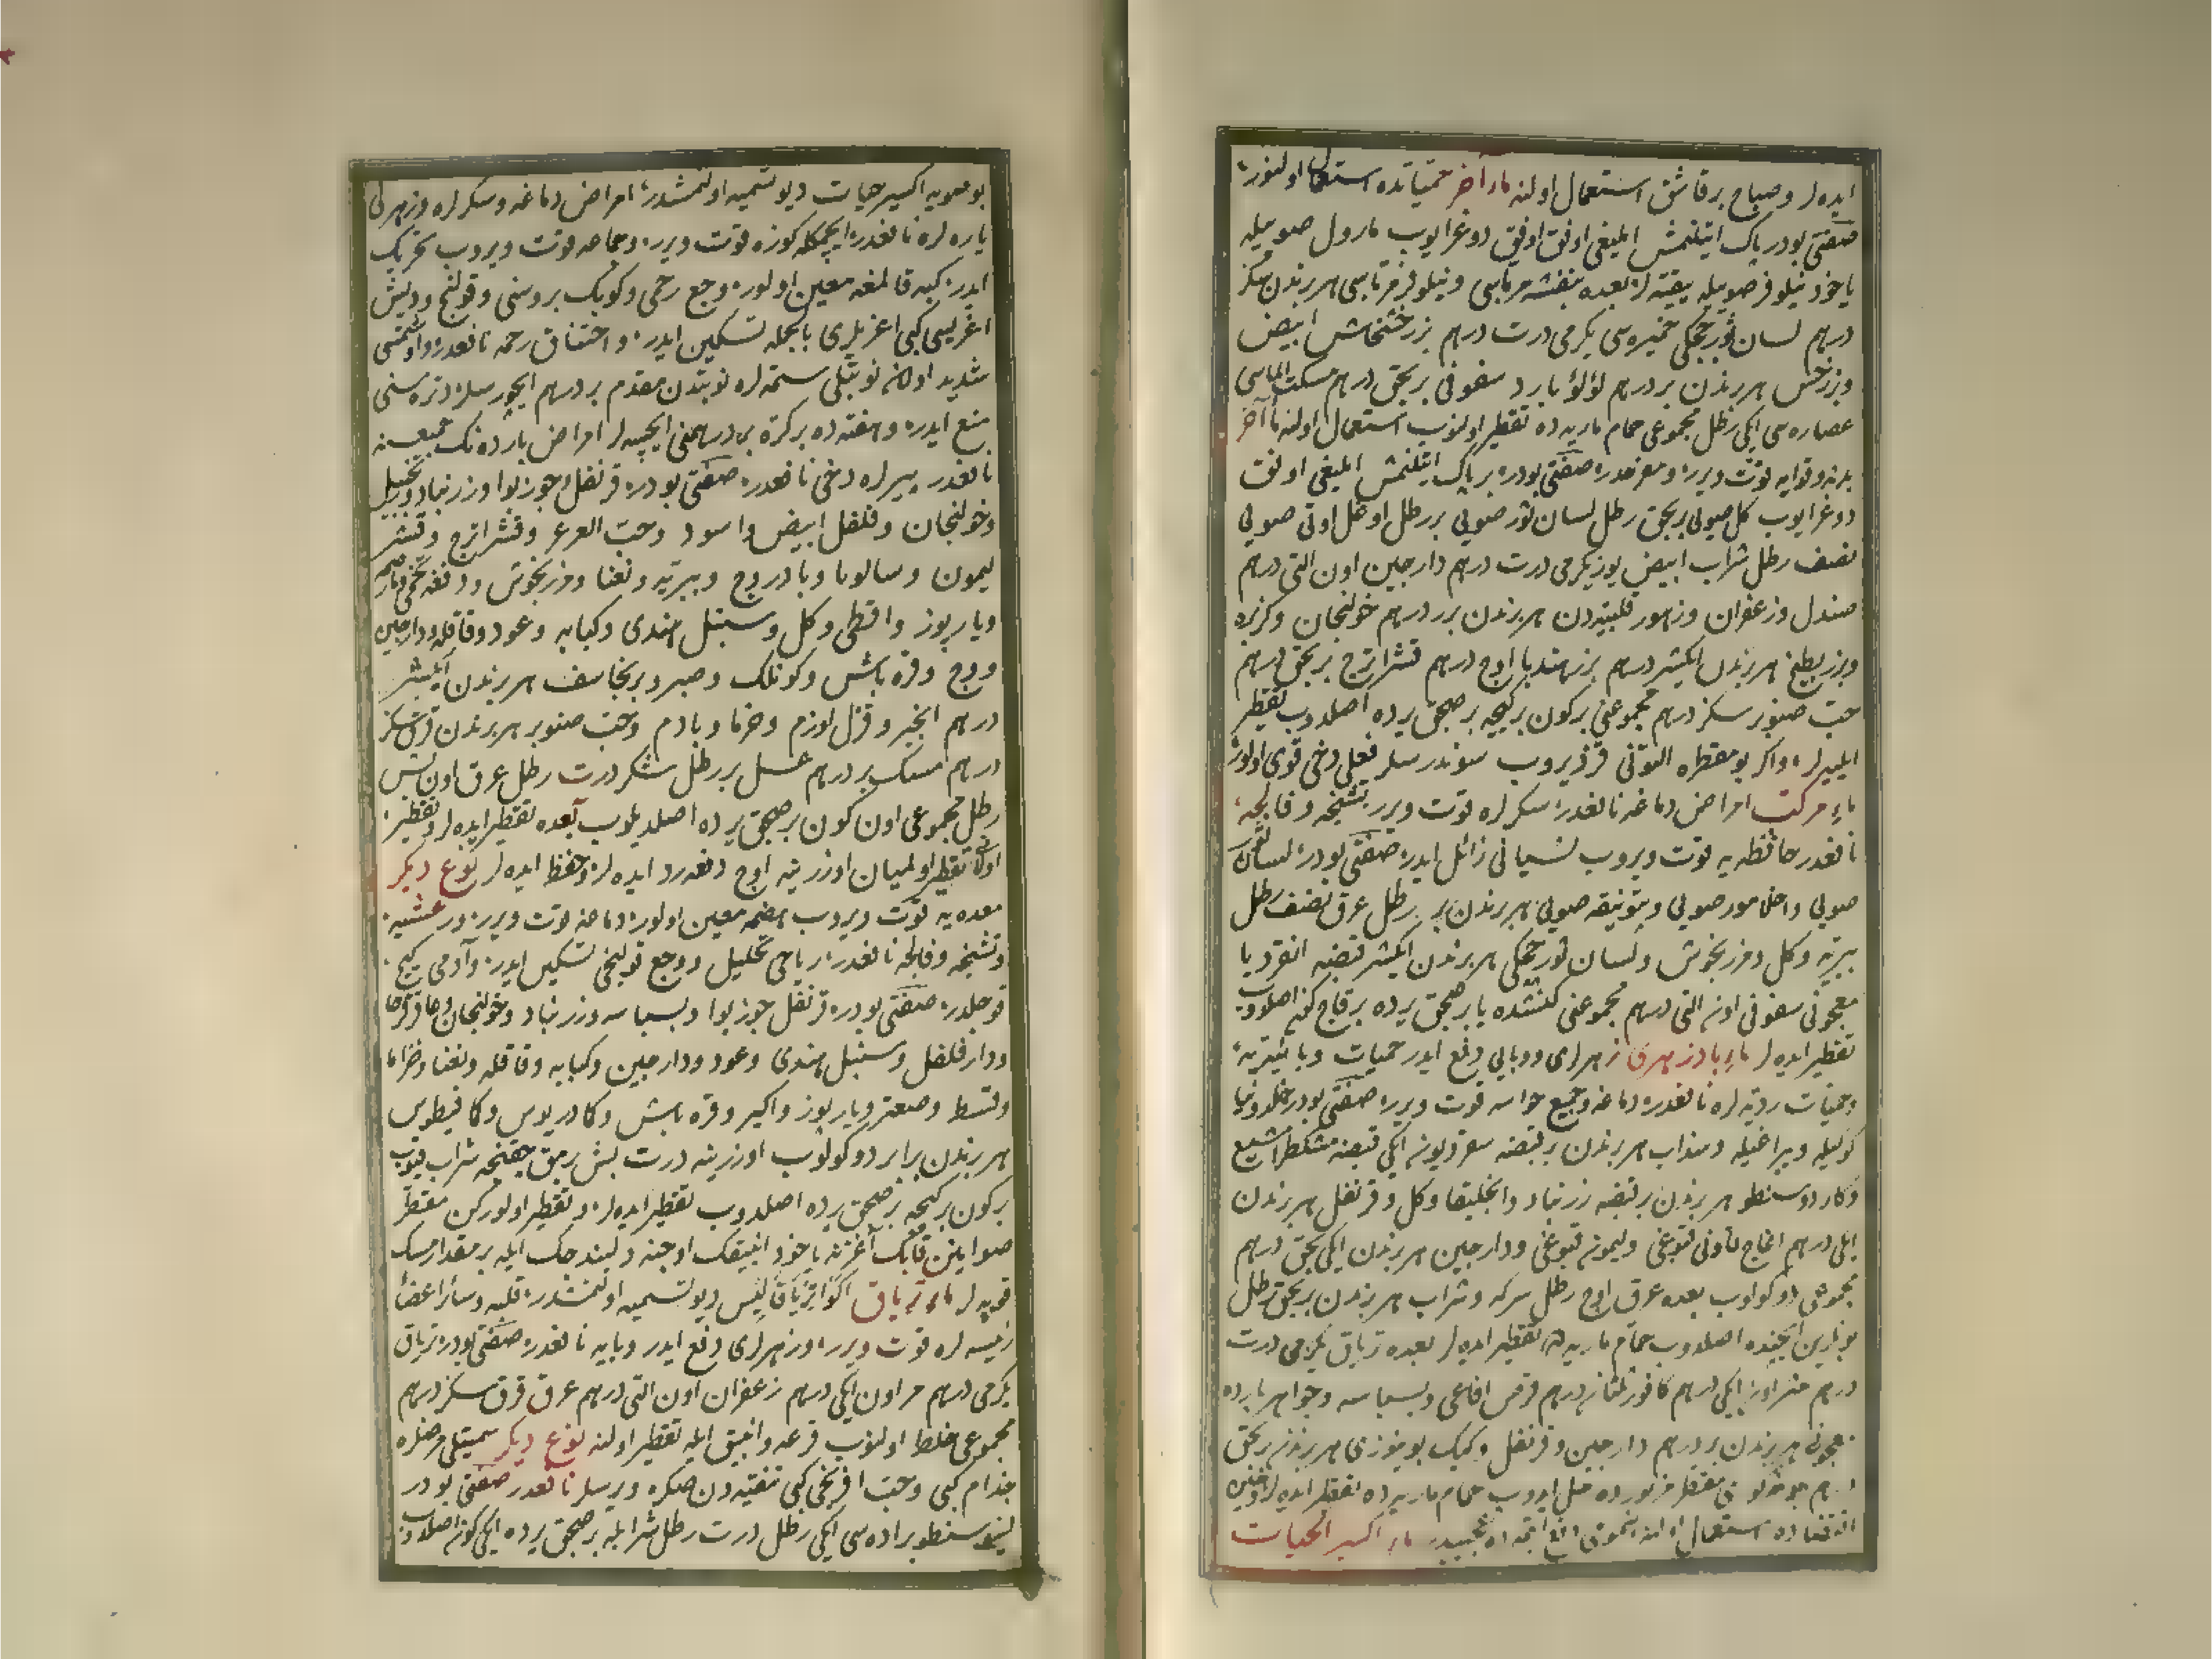 ایده لر وصباح بر قاشق استعمال اولنه ماء آخر حمیاتده استعمال اولنور
صفتی بودر پاک ایتلنمش ایلیغی اوفق اوفق دوغرایوب مارول صوییله
یاخود نیلوفر صوییله بعده بنفشه مرباسی ونیلوفر مرباسی هر برندن سکز
درهم لسان ثور چچکی خمیره سی یکرمی درت درهم بزر خشخاش ابیض
وبزر خس هر برندن بر درهم لؤلؤ بارد سفوفی بر بچق درهم مسکت الماسی
عصاره سی ایکی رطل مجموعی حمام ماریه ده تقطیر اولنوب استعمال اولنه ماء آخر
بدنه وقوایه قوت ویرر صفتی بودر بر پاک ایتلنمش ایلیغی اوفق
دوغرایوب کل صویی بر بچق رطل لسان ثور صویی بر رطل اوغل اوتی صویی
نصف رطل شراب ابیض یوز یکرمی درت درهم دارچین اون التی درهم
صندل وزعفران وزهور قلبیه دن هر برندن برر درهم خولنجان وکزبره
وبزر بطیخ هر برندن ایکیشر درهم بزر هندبا اوچ درهم قشر اترج بر بچق درهم
حب صنوبر سکز درهم مجموعنی بر کون بر کیجه بر صیجق یرده اصلدوب تقطیر
ایلیه لر واکر بو مقطره التونی قزدیروب سوندرسلر فعلی دخی قوی اولور
ماء مرکب امراض دماغه نافعدر سکرلره قوت ویرر تشنجه وفالجه
نافعدر حافظه یه قوت ویروب نسیانی زائل ایدر صفتی بودر لسان ثور
صویی واخلامور صویی وبتونیقه صویی هر برندن بر رطل عرق نصف رطل
ببریه وکل ومرزنجوش ولسان ثور چچکی هر برندن ایکیشر قبضه انقردیا
معجونی سفوفی اون التی درهم مجموعنی کنشده یا بر صیجق یرده بر قاچ کون اصلدوب
تقطیر ایده لر ماء بادزهری زهرلری ووبایی دفع ایدر حمیات وبائیه
وحمیات ردیه لره نافعدر دماغه وجمیع حواسه قوت ویرر صفتی بودر
وسذاب هر برندن بر قبضه ایکی قبضه مشکطرامشیع
هر برندن بر قبضه زرنباد وانجلیقا وکل وقرنفل هر برندن
ایکی درهم اغاج قاونی قبوغی ولیمون قبوغی ودارچین هر برندن ایکی بچق درهم
مجموعی دوکولوب بعده عرق اوچ رطل سرکه وشراب هر برندن بر بچق رطل
بونلرین ایچنده اصلدوب حمام ماریه ده تقطیر ایده لر بعده تریاق یکرمی درت
درهم ایکی درهم کافور درهم قرص افاعی وبسباسه وجواهر بارده
معجونی هر برندن بر درهم دارچین وقرنفل وکییک بوینوزی هر برندن بر بچق
درهم مقطر حل ایدوب حمام ماریه ده تقطیر ایده لر
استعمال اولنه ماء اکسیر الحیات
بو صویه اکسیر حیات دیو تسمیه اولنمشدر امراض دماغه وسکرلره وزهرلی
یاره لره نافعدر ایچمکله کوزه قوت ویرر وجماعه قوت ویروب تحریک
ایدر کبه قالمغه معین اولور وجع رحمی وکوبک بروسنی وقولنج ودیش
اغریسی کبی اغریلری بالجمله تسکین ایدر واختناق رحمه نافعدر
شدید اولان نوبتلی ستمه لره نوبتدن مقدم بر درهم ایچورسلر دتره سنی
منع ایدر وهفته ده بر کره بر درهمنی ایچسه لر امراض بارده نک جمیعسنه
نافعدر پیرلره دخی نافعدر صفتی بودر قرنفل وجوز بوا وزرنباد وزنجبیل
وخولنجان وفلفل ابیض واسود وحب العرعر وقشر اترج وقشر
لیمون وسالویا وبادروج وببریه ونعنا ومرزنجوش ودفنه تخمی
ویارپوز واقطی وکل وسنبل هندی وکبابه وعود وقاقله ودارچین
ووج وقره باش وکونلک وصبر وبرنجاسف هر برندن ایکیشر
درهم انجیر وقزل اوزم وخرما وبادم وحب صنوبر هر برندن قرق سکز
درهم مسک بر درهم عسل بر رطل شکر درت رطل عرق اون بش
رطل مجموعی اون کون بر صیجق یرده اصلدیلوب بعده تقطیر ایده لر وتقطیر
اولان تقطیر اولمیان اوزرینه اوچ دفعه رد ایده لر وحفظ ایده لر نوع دیکر
معده یه قوت ویروب هضمه معین اولور دماغه قوت ویرر ورعشیه
وتشنجه وفالجه نافعدر ریاحی تحلیل ووجع قولنجی تسکین ایدر وآدمی کیج
قوجلدر صفتی بودر قرنفل جوز بوا وبسباسه وزرنباد وخولنجان وعاقرقرحا
ودارفلفل وسنبل هندی وعود ودارچین وکبابه وقاقله ونعنا وخزاما
وقسط وصعتر ویارپوز واکیر وقره باش وکادریوس وکافیطوس
هر برندن برابر دوکولوب اوزرینه درت بش پرمق چقنجه شراب قیوب
بر کون بر کیجه بر صیجق یرده اصلدوب تقطیر ایده لر وتقطیر اولورکن مقطر
صو اینن قابک آغزنه یاخود انبیقک اوجنه دلبند جک ایله بر مقدار مسک
قویه لر ماء تریاق اکوا تریاقالیس دیو تسمیه اولنمشدر قلبه وسائر اعضاء
رئیسه لره قوت ویرر وزهرلری دفع ایدر وبایه نافعدر صفتی بودر تریاق
یکرمی درهم مر اون ایکی درهم زعفران اون التی درهم عرق قرق سکز درهم
مجموعی خلط اولنوب قرعه وانبیق ایله تقطیر اولنه نوع دیکر سمیتلی مرضلره
جذام کبی وحب افرنجی کبی تنقیه دن صکره ویرسلر نافعدر صفتی بودر
لینوسنطو براده سی ایکی رطل درت رطل شرابله بر صیجق یرده ایکی کون اصلدوب